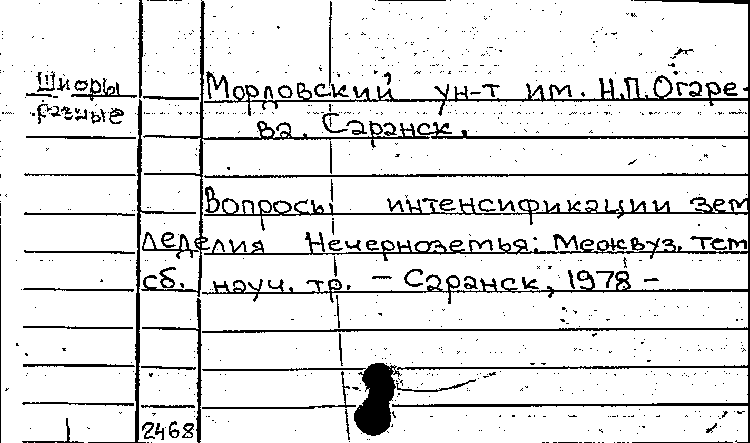 Шифры
разные
Мордовский ун-т им. Н.П.Огаре-
ва. Саранск.
Вопросы интенсификации зем
леделия Нечерноземья: Межвуз. тем
сб. науч. тр. — Саранск, 1978 —
2468